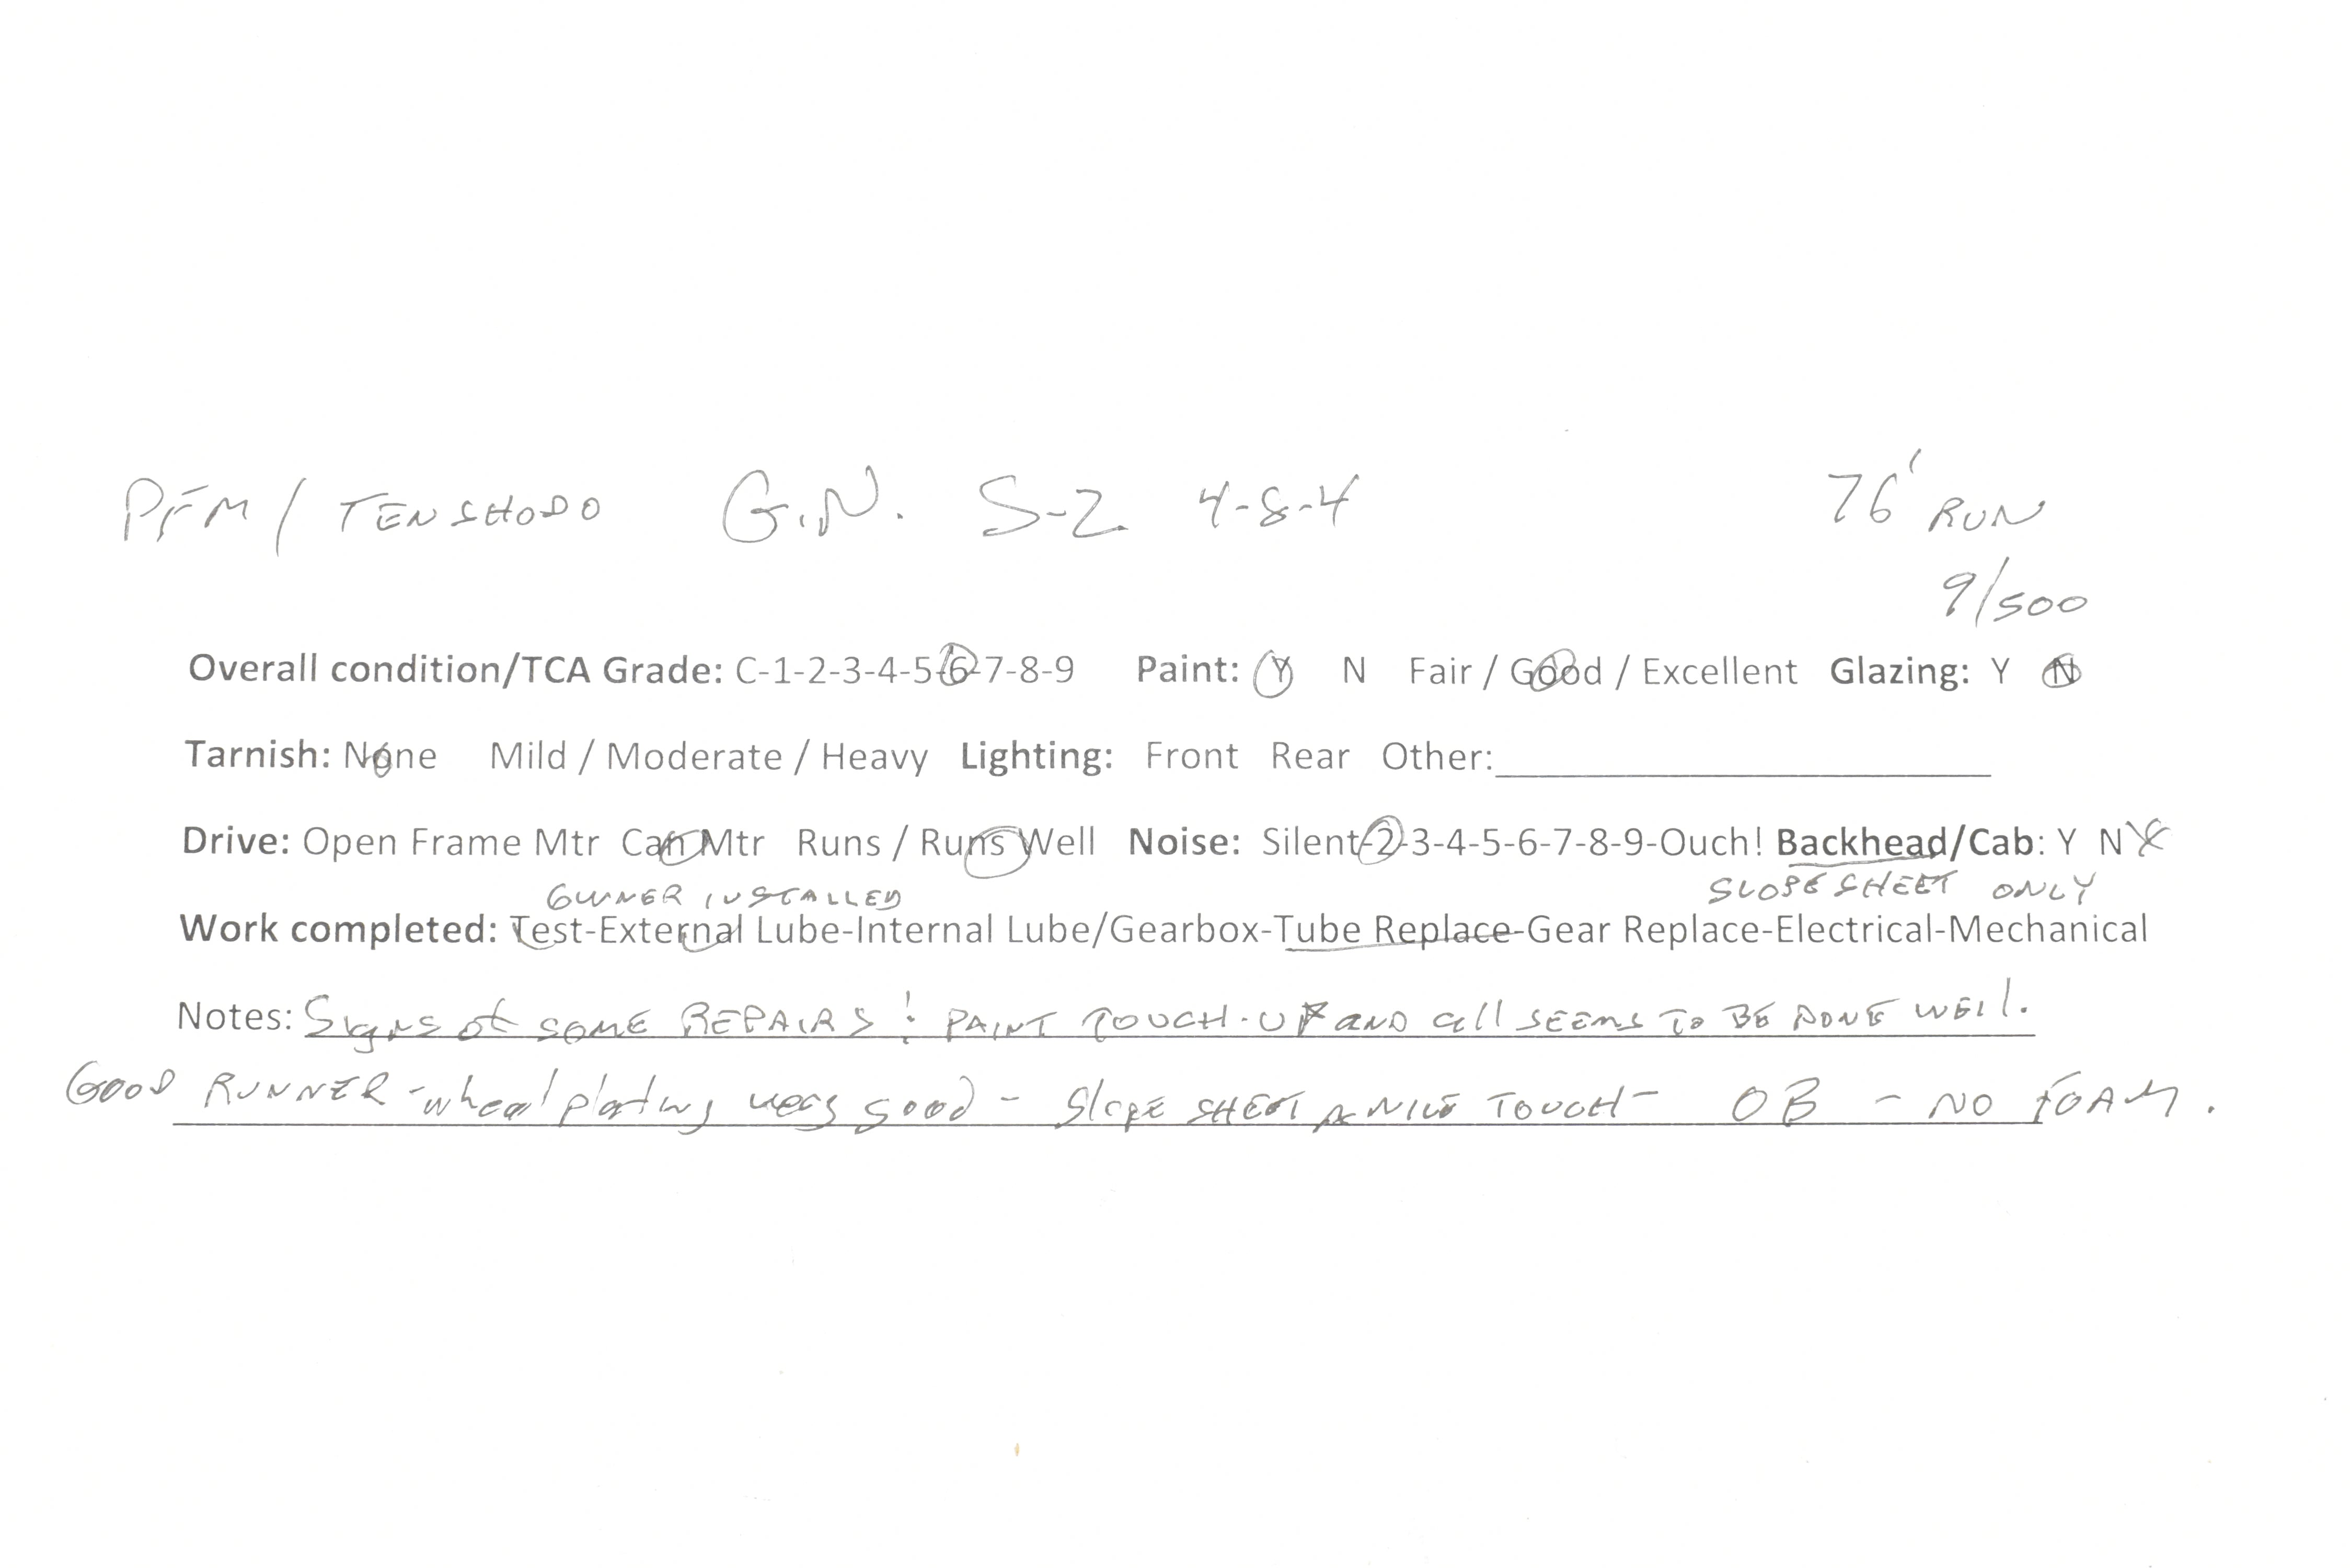 PFM / TENSHODO G.N. S-2 4-8-4 76' RUN
9/500
Overall condition/TCA Grade: C-1-2-3-4-5-6-7-8-9 Paint: Y N Fair / Good / Excellent Glazing: Y N
Tarnish: None Mild / Moderate / Heavy Lighting: Front Rear Other:
Drive: Open Frame Mtr Can Mtr Runs / Runs Well Noise: Silent-2-3-4-5-6-7-8-9-Ouch! Backhead/Cab: Y N X
OWNER INSTALLED SLOPE SHEET ONLY
Work completed: Test-External Lube-Internal Lube/Gearbox-Tube Replace-Gear Replace-Electrical-Mechanical
Notes: Signs of SOME REPAIRS ! PAINT TOUCH-UP AND all SEEMS TO BE DONE WEll.
GOOD RUNNER - wheel plating very good - Slope SHEET A NICE TOUCH - OB - NO FOAM.